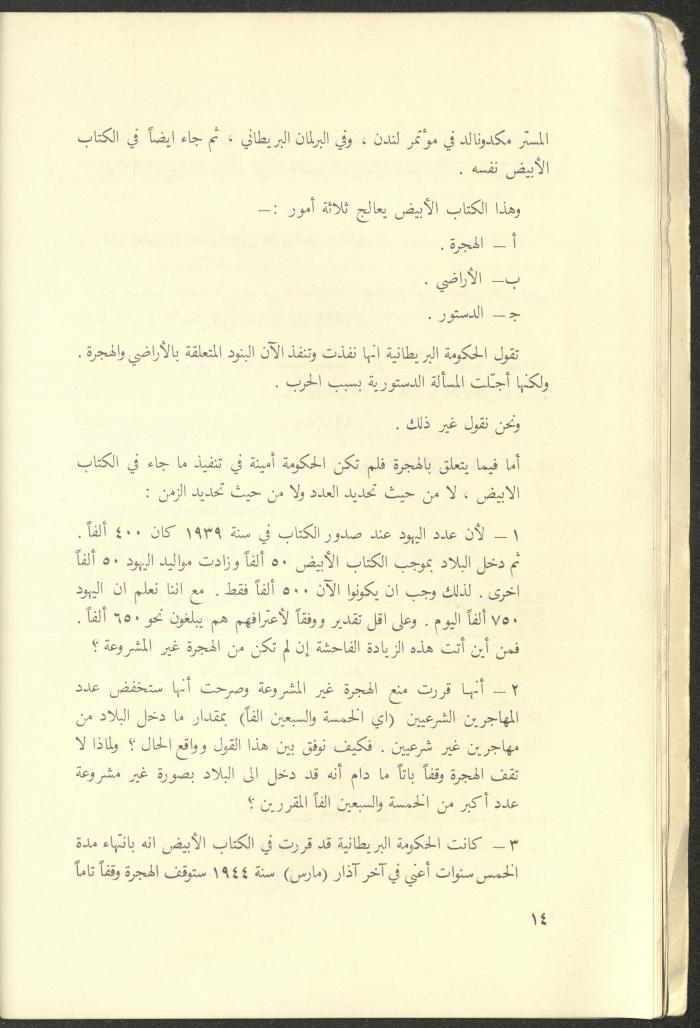 المستر مكدونالد في مؤتمر لندن ، وفي البرلمان البريطاني ، ثم جاء ايضاً في الكتاب
الأبيض نفسه .
وهذا الكتاب الأبيض يعالج ثلاثة أمور :—
أ — الهجرة .
ب— الأراضي .
ج— الدستور .
تقول الحكومة البريطانية انها نفذت وتنفذ الآن البنود المتعلقة بالأراضي والهجرة .
ولكنها أجّلت المسألة الدستورية بسبب الحرب .
ونحن نقول غير ذلك .
أما فيما يتعلق بالهجرة فلم تكن الحكومة أمينة في تنفيذ ما جاء في الكتاب
الابيض ، لا من حيث تحديد العدد ولا من حيث تحديد الزمن :
١ — لأن عدد اليهود عند صدور الكتاب في سنة ١٩٣٩ كان ٤٠٠ ألفاً .
ثم دخل البلاد بموجب الكتاب الأبيض ٥٠ ألفاً وزادت مواليد اليهود ٥٠ ألفاً
اخرى . لذلك وجب ان يكونوا الآن ٥٠٠ ألفاً فقط . مع اننا نعلم ان اليهود
٧٥٠ ألفاً اليوم . وعلى اقل تقدير ووفقاً لأعترافهم هم يبلغون نحو ٦٥٠ ألفاً .
فمن أين أتت هذه الزيادة الفاحشة إن لم تكن من الهجرة غير المشروعة ؟
٢ — أنها قررت منع الهجرة غير المشروعة وصرحت أنها ستخفض عدد
المهاجرين الشرعيين (اي الخمسة والسبعين الفاً) بمقدار ما دخل البلاد من
مهاجرين غير شرعيين . فكيف نوفق بين هذا القول وواقع الحال ؟ ولماذا لا
تقف الهجرة وقفاً باتاً ما دام أنه قد دخل الى البلاد بصورة غير مشروعة
عدد أكبر من الخمسة والسبعين الفاً المقررين ؟
٣ — كانت الحكومة البريطانية قد قررت في الكتاب الأبيض انه بانتهاء مدة
الخمس سنوات أعني في آخر آذار (مارس) سنة ١٩٤٤ ستوقف الهجرة وقفاً تاماً
١٤